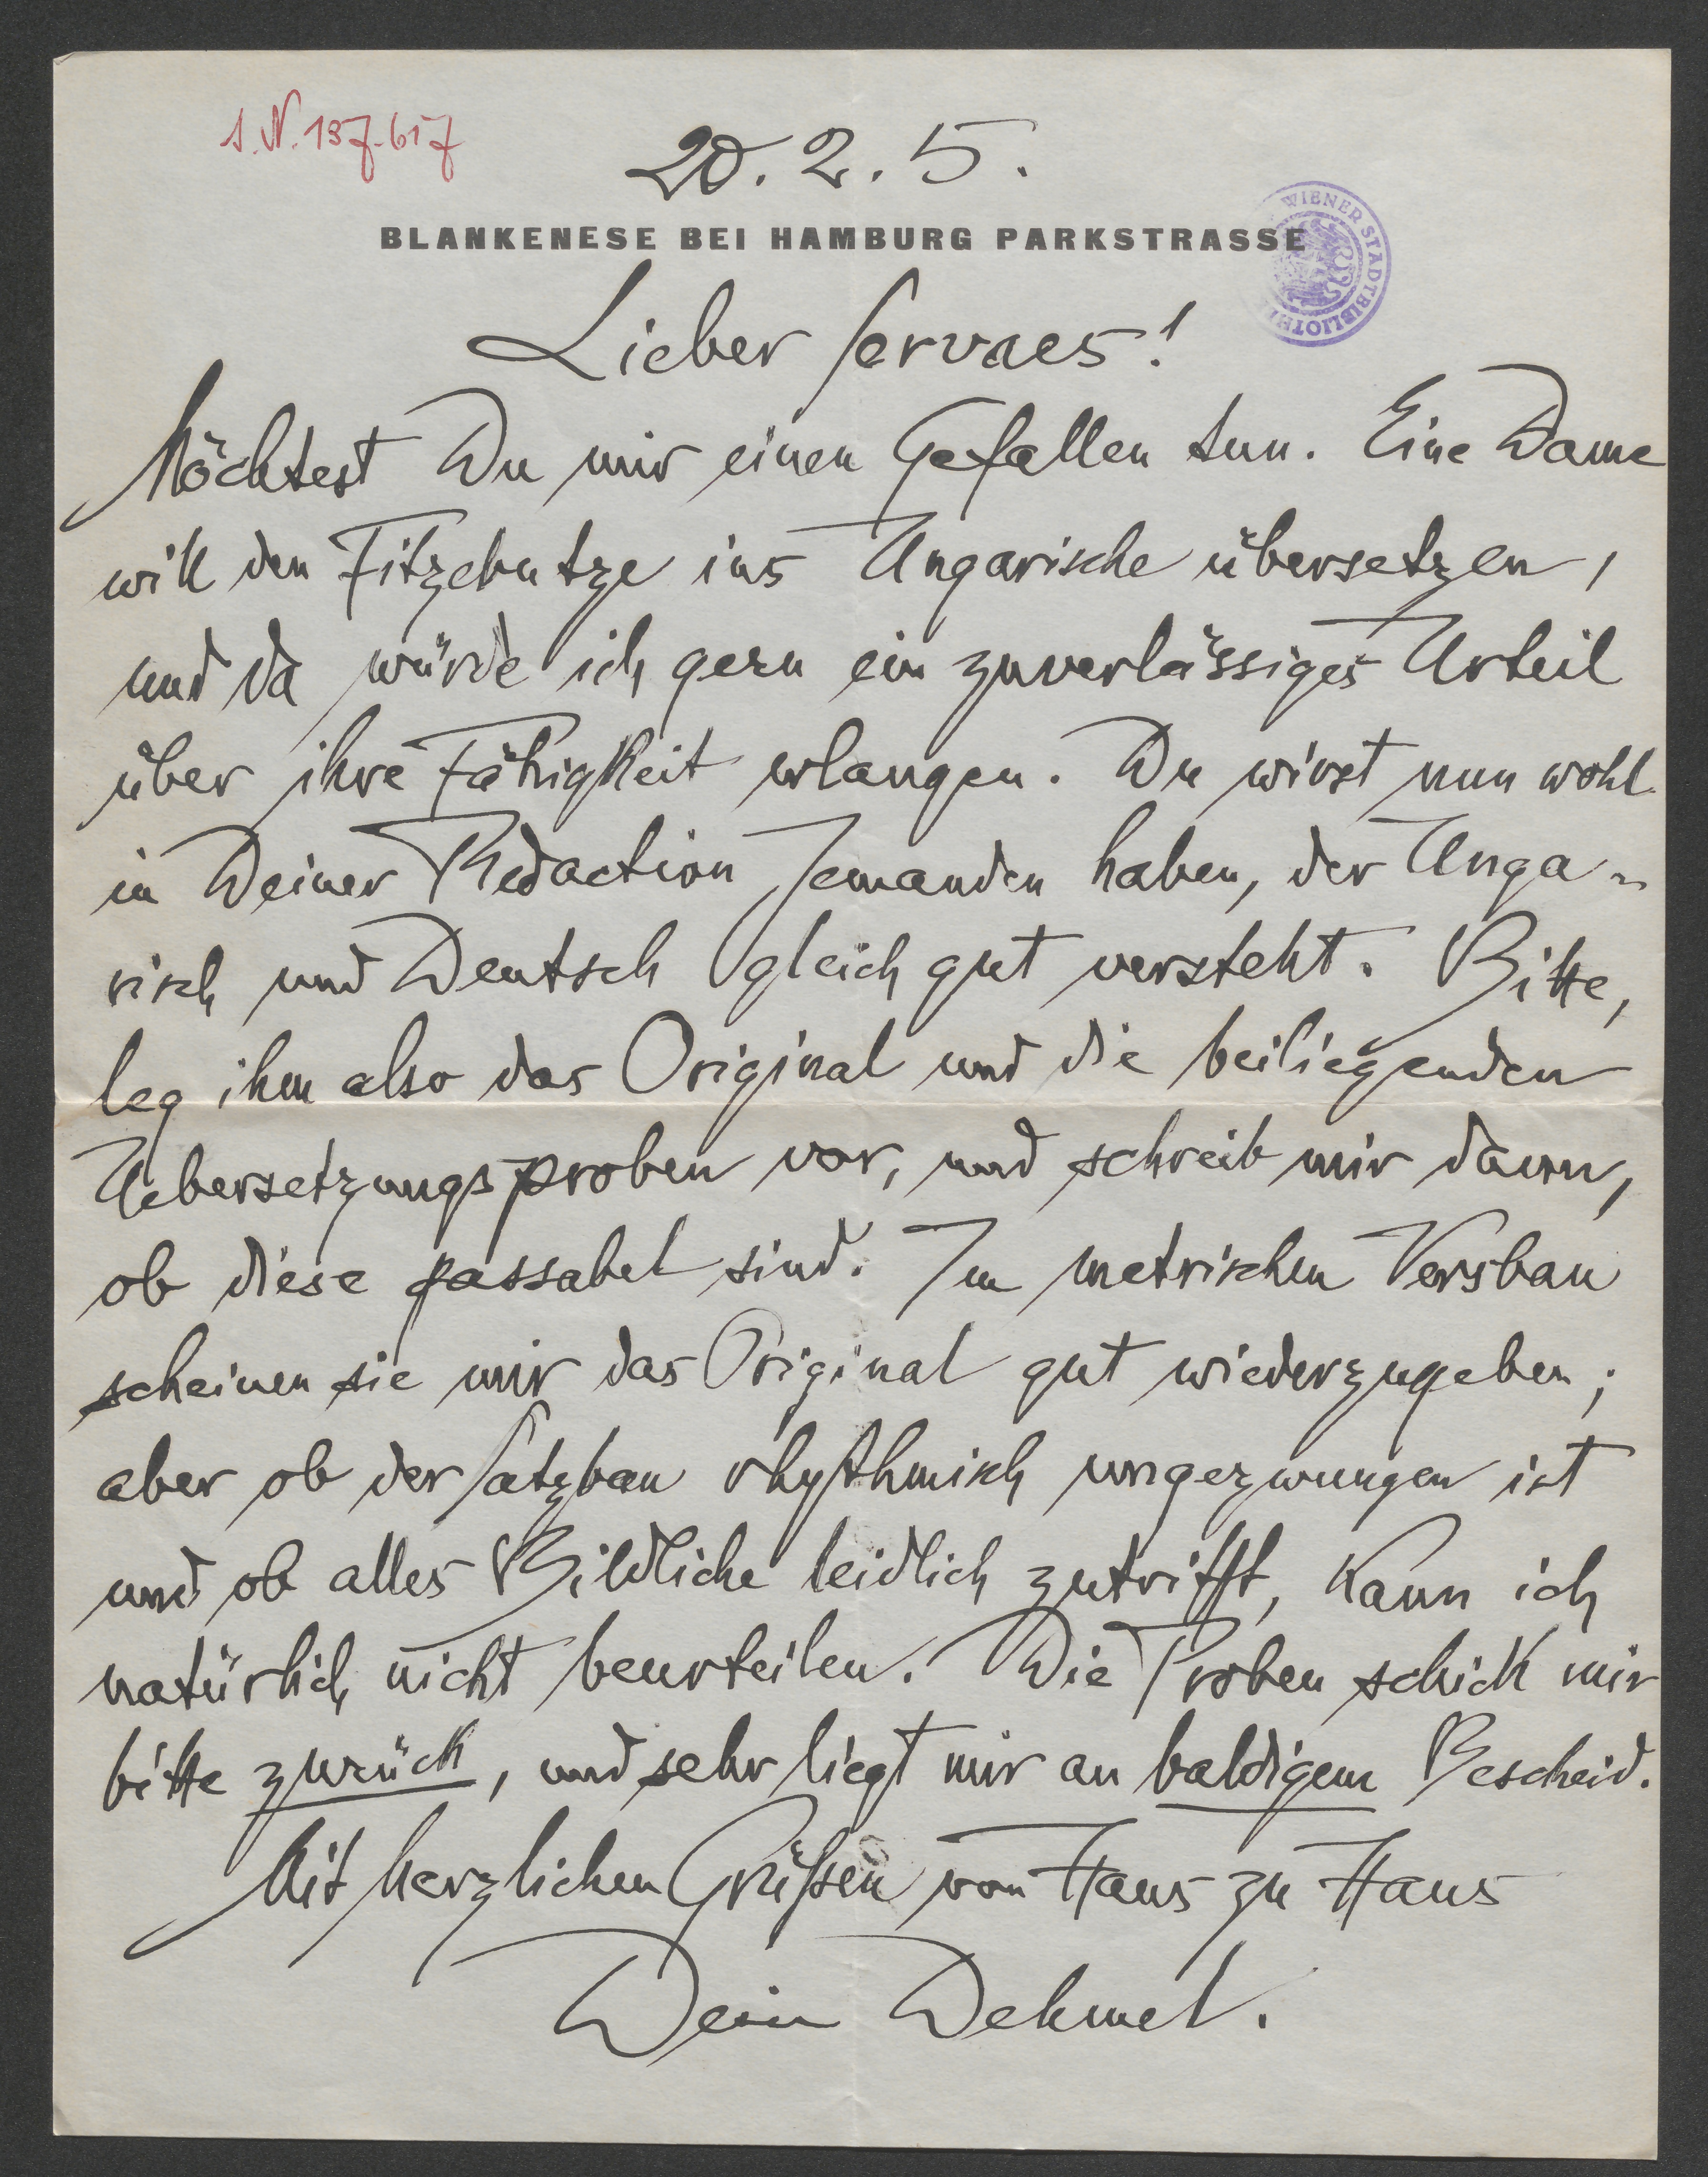 I.N. 137.617
20. 2. 5.
BLANKENESE BEI HAMBURG PARKSTRASSE
WIENER STADTBIBLIOTHEK
Lieber Servaes!
Möchtest Du mir einen Gefallen tun. Eine Dame
will den Fitzebutze ins Ungarische übersetzen,
und da würde ich gern ein zuverlässiges Urteil
über ihre Fähigkeit erlangen. Du wirst nun wohl
in Deiner Redaction Jemanden haben, der Unga-
risch und Deutsch gleich gut versteht. Bitte,
leg ihm also das Original und die beiliegenden
Uebersetzungsproben vor, und schreib mir dann,
ob diese passabel sind. Im metrischen Versbau
scheinen sie mir das Original gut wiederzugeben;
aber ob der Satzbau rhythmisch ungezwungen ist
und ob alles Bildliche leidlich zutrifft, kann ich
natürlich nicht beurteilen. Die Proben schick mir
bitte zurück, und sehr liegt mir an baldigem Bescheid.
Mit herzlichen Grüßen von Haus zu Haus
Dein Dehmel.